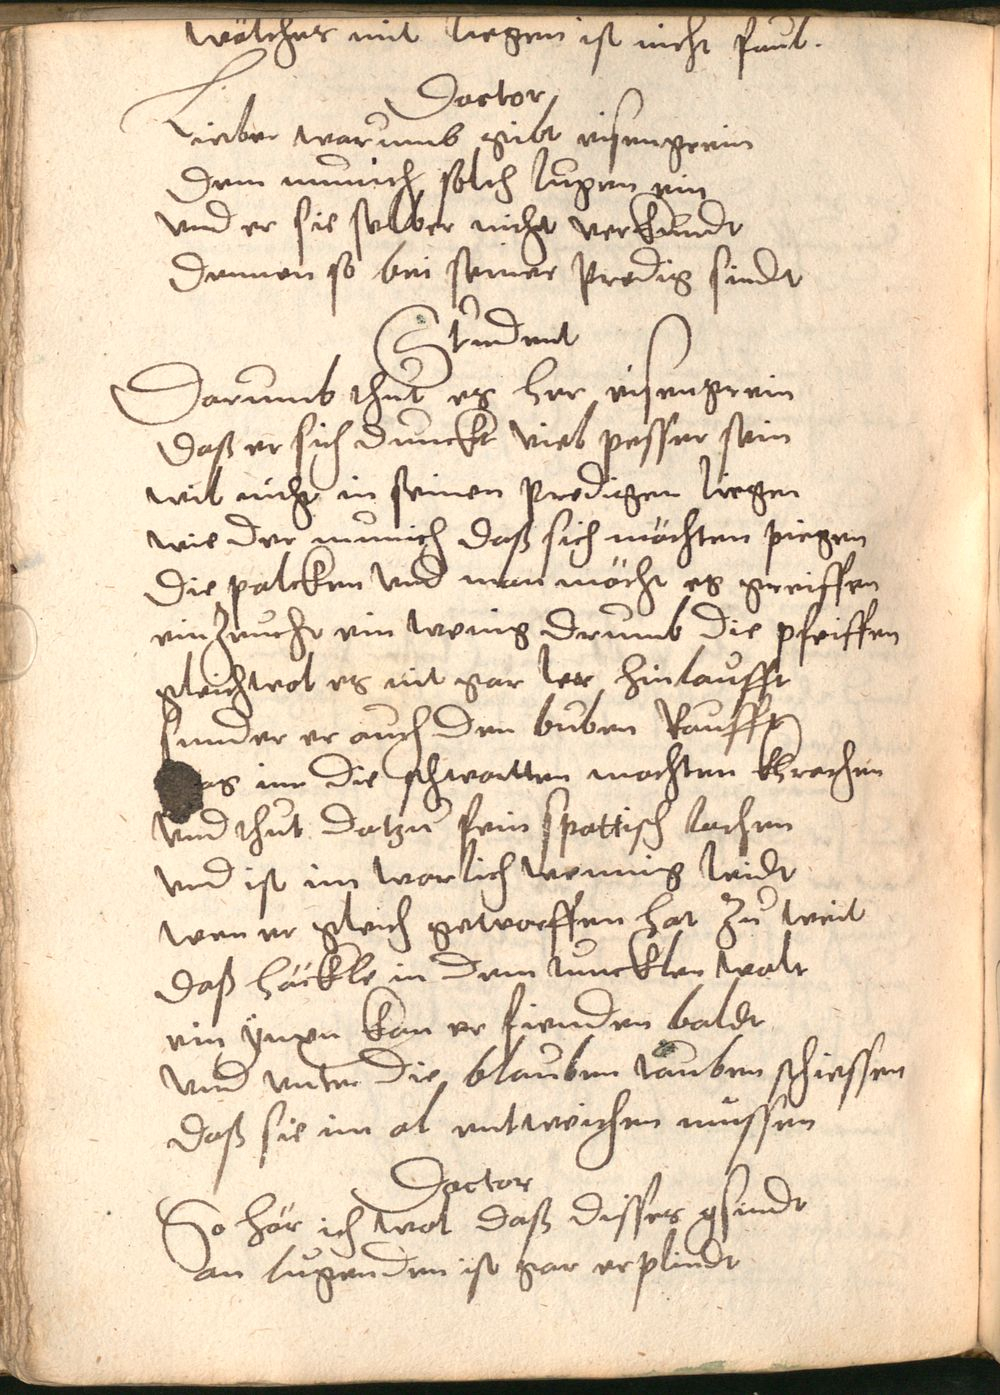 wölcher mit liegen ist nicht faul.
Doctor
Lieber warumb gibt eisengrein
dem munich solch lugen ein
vnd er sie selber nicht verkundt
dennen so bei seiner predig sindt
Student
Darumb thut es her eisengrein
daß er sich dunckt viel pesser sein
wil nicht in seinen predigen liegen
wie der munich daß sich möchten piegen
die palcken vnd man möcht es greiffen
ein Zeucht ein wenig drumb die pfeiffen
gleichwol es nit gar ler hinlaufft
sunder er auch den buben kaufft
as im die schwartten mochten khrachen
vnd thut datzu fein spottisch lachen
vnd ist im warlich wennig leidt
wen er gleich geworffen hat Zu weit
daß häckle in dem tuncklen walt
ein kan er fienden baldt
vnd vnter die blauben tauben schiessen
daß sie im al entweichen müssen
Doctor
So hör ich wol daß disses gsindt
an tugenden ist gar erplindt